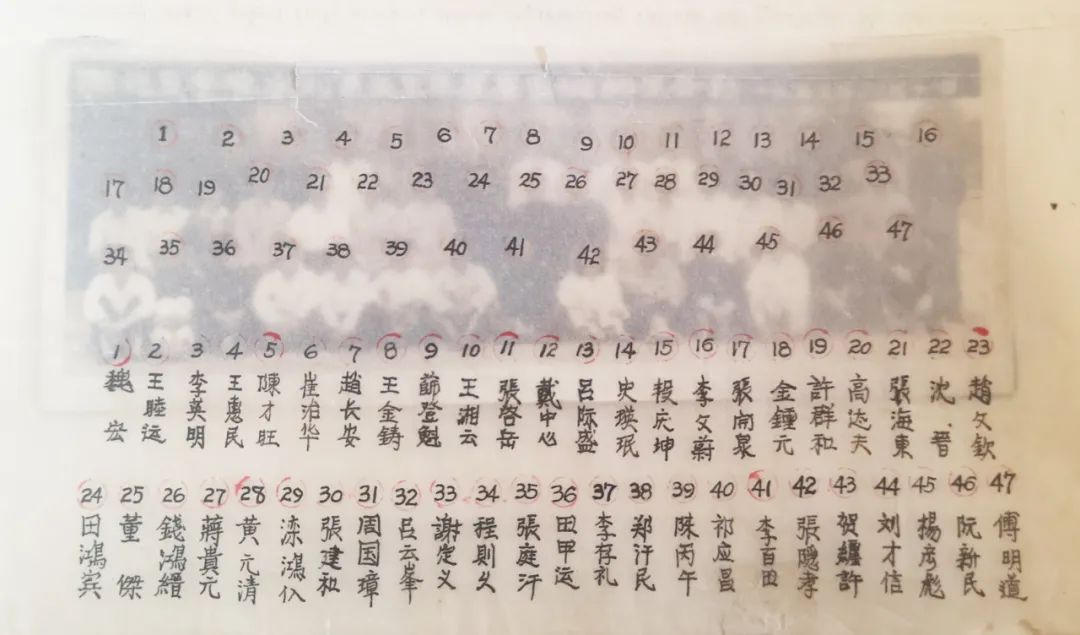 1 2 3 4 5 6 7 8 9 10 11 12 13 14 15 16
17 18 19 20 21 22 23 24 25 26 27 28 29 30 31 32 33
34 35 36 37 38 39 40 41 42 43 44 45 46 47
1 2 3 4 5 6 7 8 9 10 11 12 13 14 15 16 17 18 19 20 21 22 23
魏宏 王睦远 李英明 王惠民 陳才旺 崔治华 趙长安 王金鋳 薛登魁 王湘云 張啓岳 戴中心 吕际盛 史瑛珉 段庆坤 李文蔚 張開泉 金鍾元 許群和 高达夫 張海東 沈晋 趙文欽
24 25 26 27 28 29 30 31 32 33 34 35 36 37 38 39 40 41 42 43 44 45 46 47
田鴻宾 董傑 錢鴻縉 蔣貴元 黄元清 滦鴻仁 張建和 周国璋 吕云峯 謝定义 程则久 張庭汗 田甲运 李存礼 郑汗民 陈丙午 祁应昌 李百田 張隐孝 贺許 刘才信 楊彦彪 阮新民 傅明道